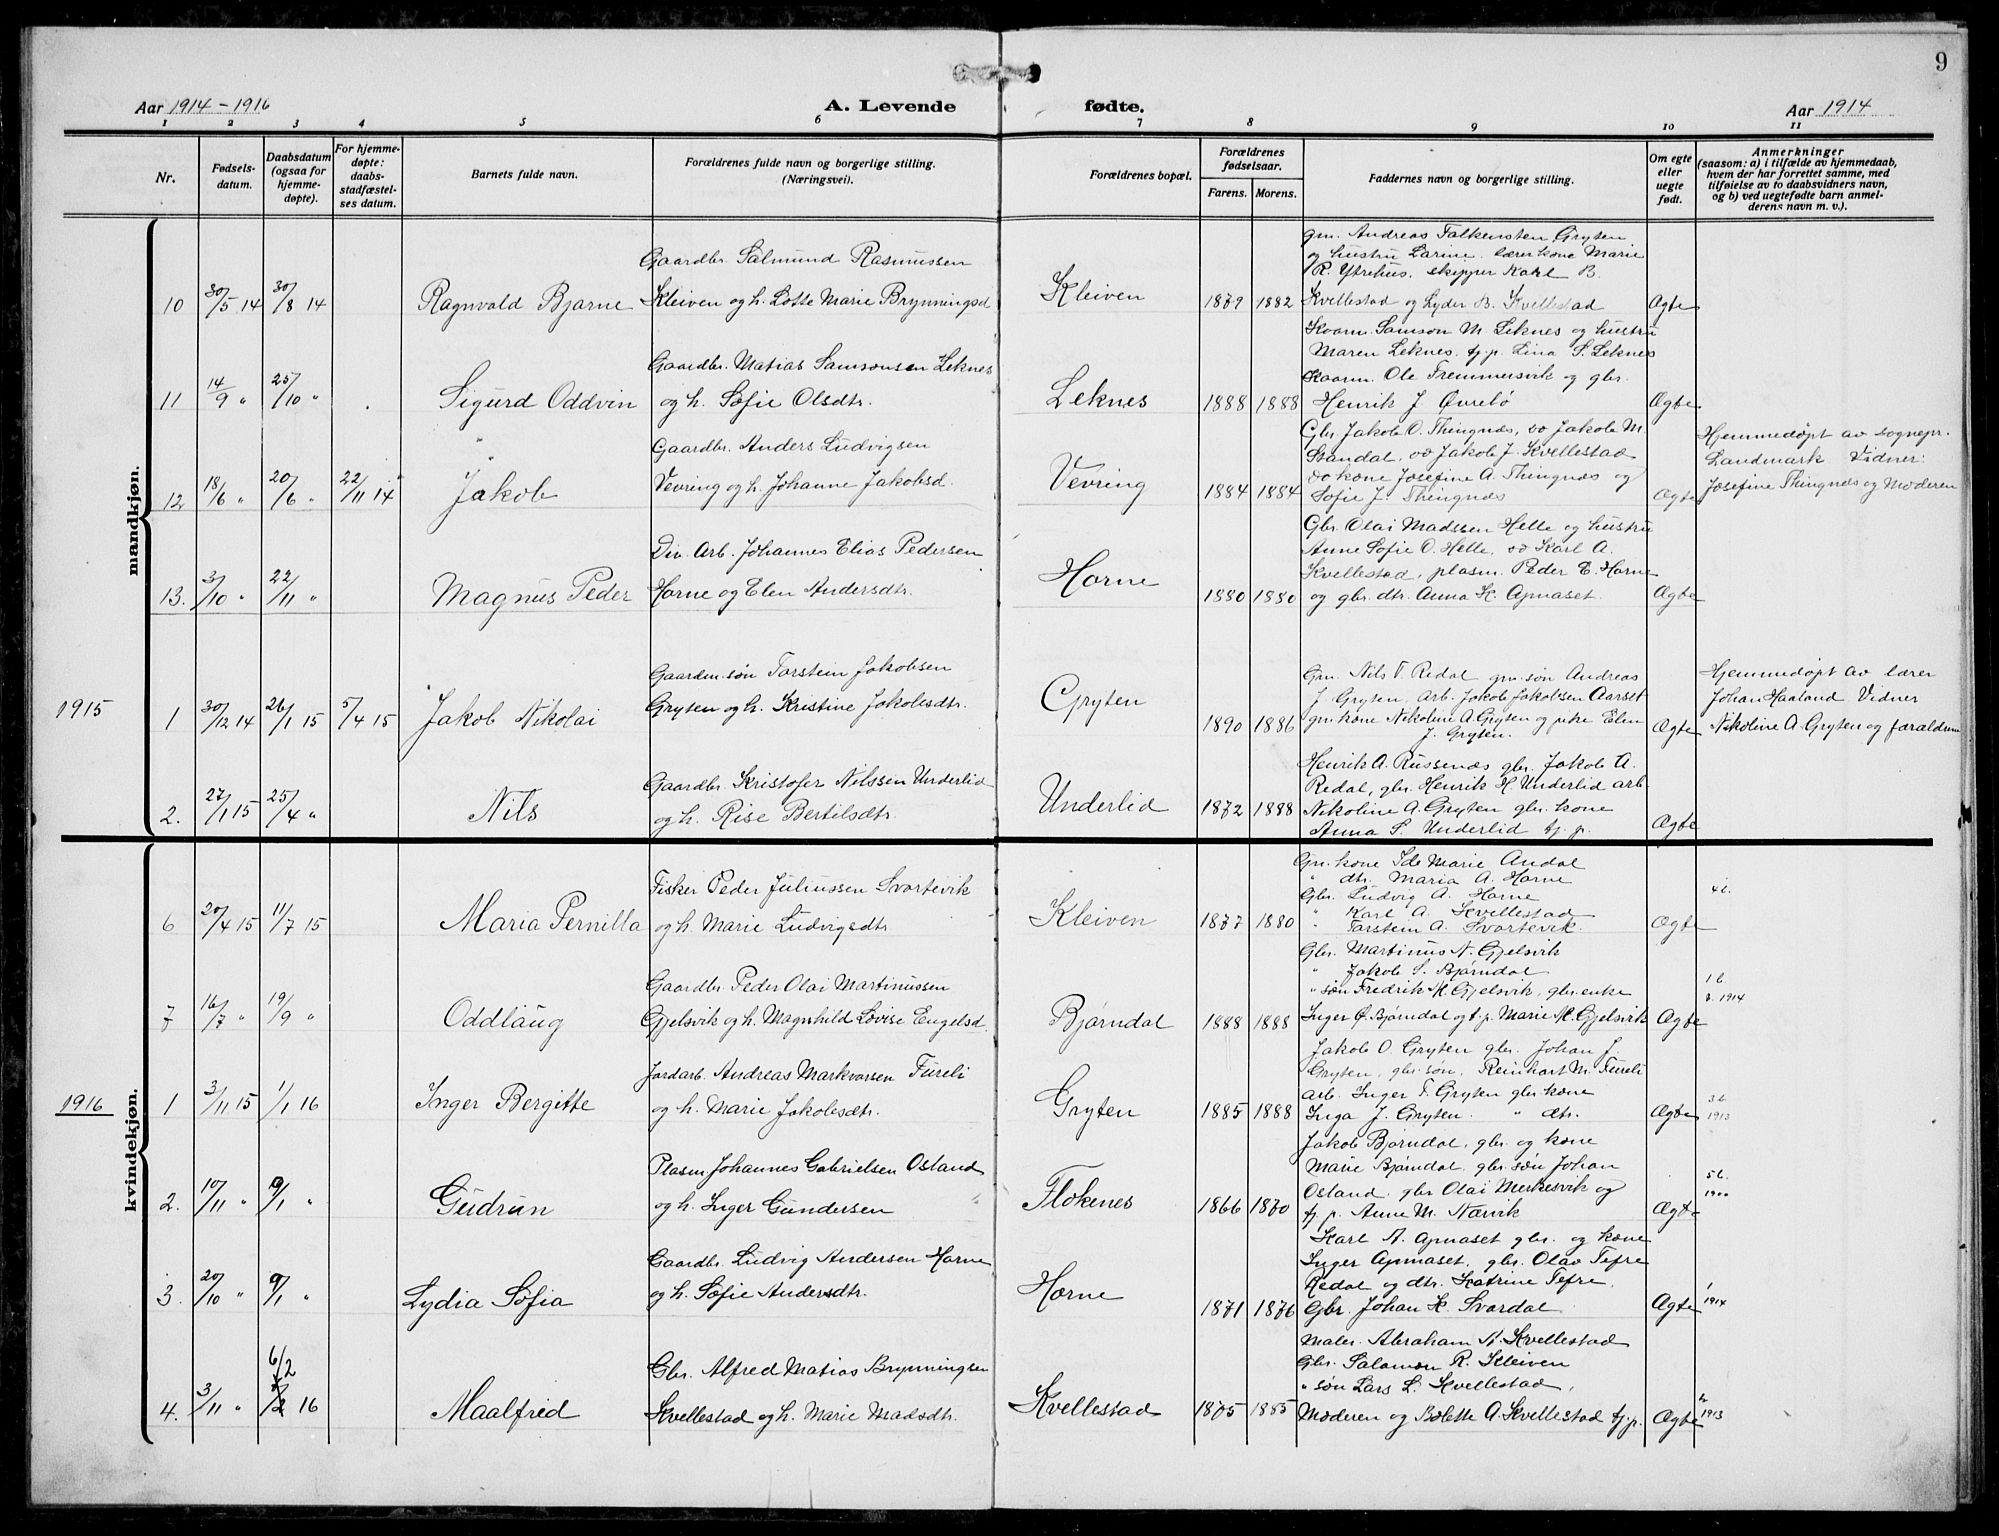 9
Aar 1914-1916
A. Levende fødte.
Aar 1914
1 2 3 4 5 6 7 8 9 10 11
Nr.
Fødsels-
datum.
Daabsdatum
(ogsaa for
hjemme-
døpte).
For hjemme-
døpte:
daabs-
stadfæstel-
ses datum.
Barnets fulde navn.
Forældrenes fulde navn og borgerlige stilling.
(Næringsvei).
Forældrenes bopæl.
Forældrenes
fødselsaar.
Farens. Morens.
Faddernes navn og borgerlige stilling.
Om egte
eller
uegte
født.
Anmerkninger
(saasom: a) i tilfælde av hjemmedaab,
hvem der har forrettet samme, med
tilføielse av to daabsvidners navn,
og b) ved uegtefødte barn anmel-
derens navn m. v.).
mandkjøn.
10 30/5 14 30/8 14 Ragnvald Bjarne
Gaardbr. Salmund Rasmussen
Kleiven og h. Lotte Marie Brynningsd
Kleiven 1879 1882
gm. Andreas Falkensten Gryten
og hustru Larine. lærer kone Marie
R. Ytrehus. skipper Karl B.
Kvellestad og Lyder B. Kvellestad
Ægte
11 14/9 " 25/10 " Sigurd Oddvin
Gaardbr. Matias Samsonsen Leknes
og h. Sofie Olsdtr.
Leknes 1888 1888
Kaarm. Samson M. Leknes og hustru
Maren Leknes. tj.p. Lina S. Leknes
Kaarm. Ole Tremmersvik og gbr.
Henrik J Øvrebø
Ægte
12 18/6 20/6 " 22/11 14 Jakob
Gaardbr. Anders Ludvigsen
Vevring og h. Johanne Jakobsd.
Vevring 1884 1884
Gbr Jakob O. Thingnæs, do Jakob M.
Standal, do Jakob J. Kvellestad
do kone Josefine A. Thingnæs og
Sofie J. Thingnæs
Ægte
Hjemmedøpt av sognepr.
Landmark Vidner:
Josefine Thingnæs og Moderen
13. 3/10 " 22/11 " Magnus Peder
Div. Arb. Johannes Elias Pedersen
Horne og Elen Andersdtr.
Horne 1880 1880
Gbr. Olai Madssen Helle og hustru
Anne Sofie O. Helle, do Karl A.
Kvellestad, plasm. Peder E. Horne
og gbr. dtr. Anna K. Apnaset.
Ægte
1915
1 30/12 14 26/1 15 5/4 15 Jakob Nikolai
Gaardm. søn Torstein Jakobsen
Gryten og h. Kristine Jakobsdtr.
Gryten 1890 1886
Gm. Nils T. Redal gm. søn Andreas
J. Gryten, arb. Jakob Jakobsen Aarset
gm. kone Nikoline A. Gryten og pike Elen
J. Gryten.
Ægte
Hjemmedøpt av lærer
Johan Haaland Vidner
Nikoline A. Gryten og forældrene
2. 27/1 15 25/4 " Nils
Gaardbr. Kristofer Nilssen Underlid
og h. Rise Bertilsdtr.
Underlid 1872 1888
Henrik A. Russenæs gbr. Jakob A.
Redal, gbr. Henrik H. Underlid arb.
Nikoline A. Gryten gbr. kone
Anna S. Underlid tj. p.
Ægte
kvindekjøn.
6 20/4 15 11/7 15 Maria Pernilla
Fisker Peder Juliussen Svortevik
og h. Marie Ludvigsdtr.
Kleiven 1877 1880
Gm. kone Ida Marie Andal
" dtr. Maria A. Horne
Gbr. Ludvig A. Horne
" Karl A. Kvellestad
" Torstein A. Svortevik.
Ægte
4 b.
7 16/7 " 19/9 " Oddlaug
Gaardbr. Peder Olai Martinussen
Gjelsvik og h. Magnhild Lovise Engelsd.
Bjørndal 1888 1888
Gbr. Martinus N. Gjelsvik
" Jakob S. Bjørndal
" søn Fredrik M. Gjelsvik, gbr. enke
Inger Ø. Bjørndal og t. p. Marie M. Gjelsvik
Ægte
1 b.
1914
1916
1 3/11 15 1/1 16 Inger Bergitte
Jordarb. Andreas Markvorsen Fureli
og h. Marie Jakobsdtr.
Gryten 1885 1888
Jakob O. Gryten gbr. Johan J.
Gryten, gbr. søn, Reinhart M. Fureli
arb. Inger T. Gryten gbr. kone
Inga J. Gryten. " dtr.
Ægte
3 b.
1913
2. 10/11 " 9/1 " Gudrun
Plasm. Johannes Gabrielsen Osland
og h. Inger Gundersen
Flokenes 1866 1870
Jakob Bjørndal, gbr. og kone
Marie Bjørndal, gbr. søn Johan
Osland, gbr Olai Merkesvik og
tj. p. Anne M. Nærvik
Ægte
5 b.
1900
3. 20/10 " 9/1 " Lydia Sofia
Gaardbr. Ludvig Andersen Horne
og h. Sofie Andersdtr.
Horne 1871 1876
Karl A. Apnaset gbr. og kone
Inger Apnaset, gbr. Olav Tefre
Redal og dtr. Katrine Tefre,
Gbr. Johan K. Svardal
Ægte
1
1914
4. 3/11 " 6/2 16 Maalfred
Gbr. Alfred Matias Brynningsen
Kvellestad og h. Marie Madsdtr.
Kvellestad 1875 1885
Maler. Abraham A. Kvellestad
Gbr. Salamon R. Kleiven
" søn Lars L. Kvellestad,
Moderen og Bolette A. Kvellestad tj.p.
Ægte
1913